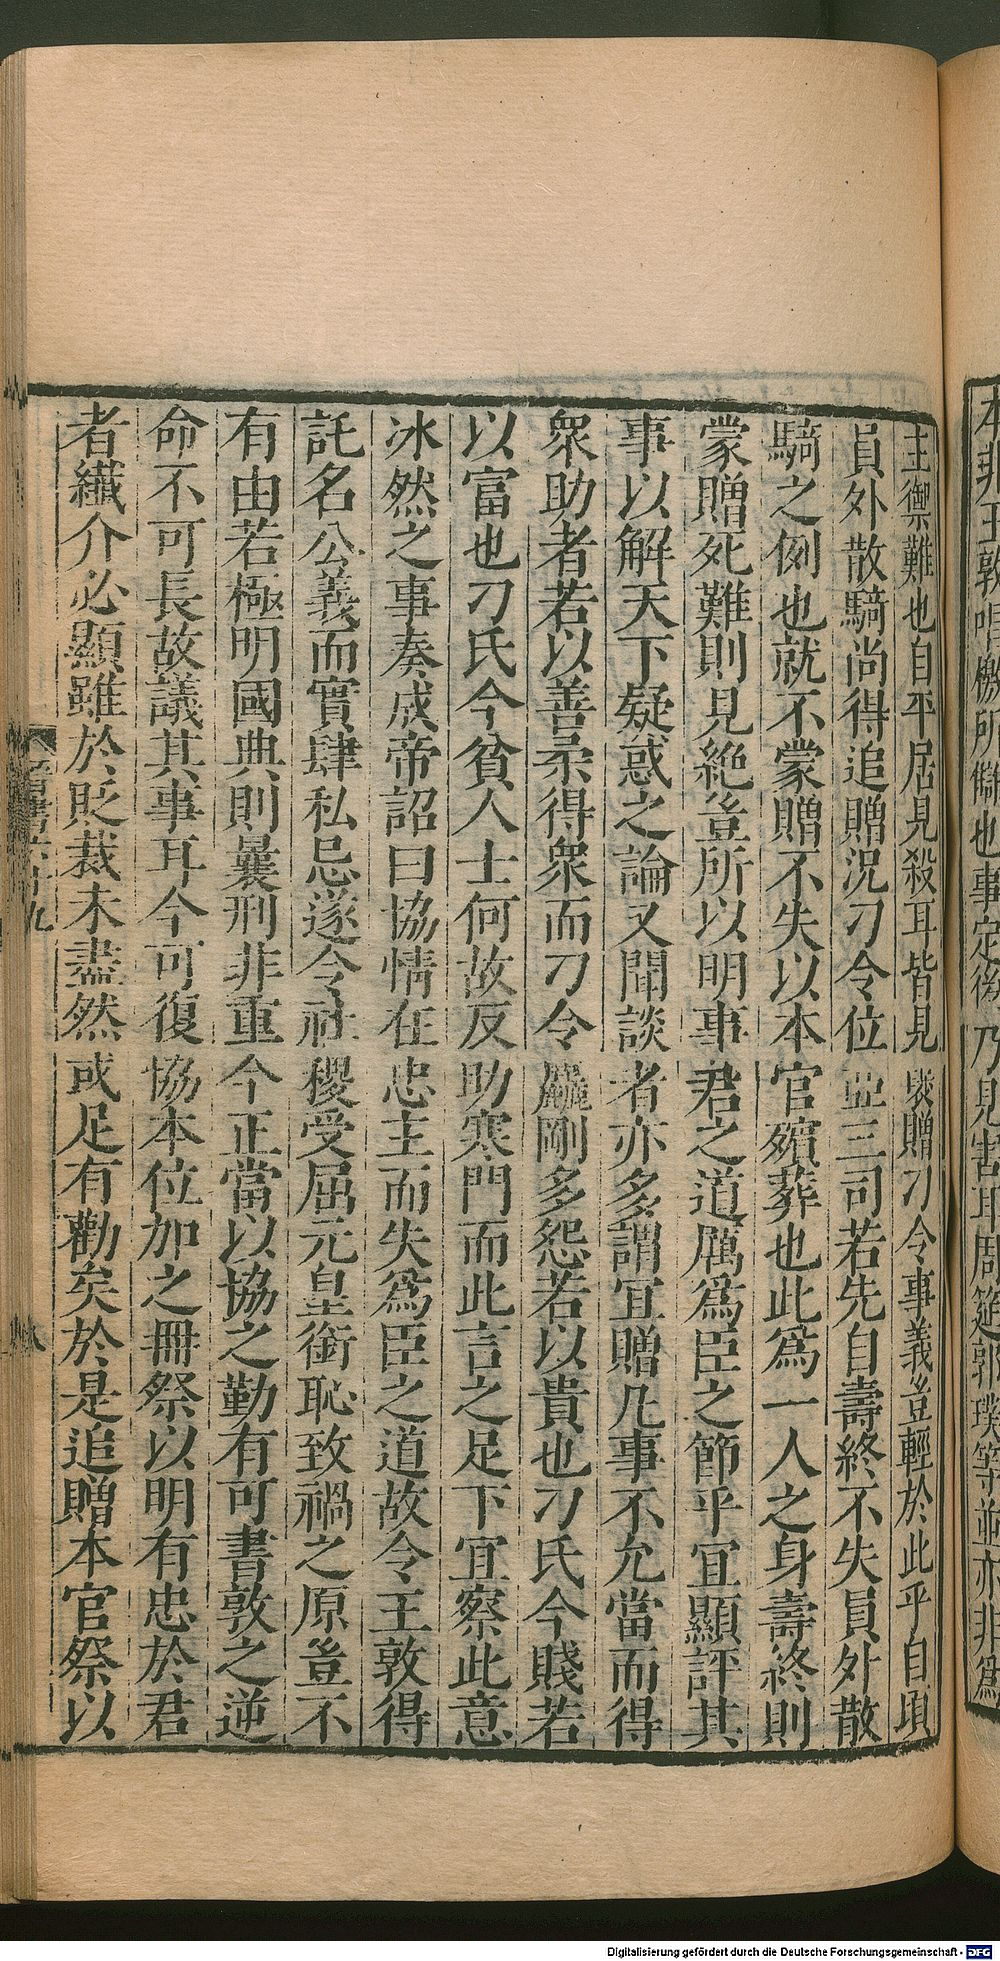 本非王敦唱檄所讎也事定後乃見害耳周筵郭璞等並亦非爲
主禦難也自平居見殺耳皆見褒贈刁令事義豈輕於此乎自頃
員外散騎尚得追贈況刁令位亞三司若先自壽終不失員外散
騎之例也就不蒙贈不失以本官殯葬也此爲一人之身壽終則
蒙贈死難則見絶豈所以明事君之道厲爲臣之節乎宜顯評其
事以解天下疑惑之論又聞談者亦多謂宜贈凡事不允當而得
衆助者若以善柔得衆而刁令麤剛多怨若以貴也刁氏今賤若
以富也刁氏今貧人士何故反助寒門而此言之足下宜察此意
冰然之事奏成帝詔曰協情在忠主而失爲臣之道故令王敦得
託名公義而實肆私忌遂令社稷受屈元皇銜恥致禍之原豈不
有由若極明國典則曩刑非重今正當以協之勤有可書敦之逆
命不可長故議其事耳今可復協本位加之冊祭以明有忠於君
者纖介必顯雖於貶裁未盡然或足有勸矣於是追贈本官祭以
晉書六十九
Digitalisierung gefördert durch die Deutsche Forschungsgemeinschaft - DFG